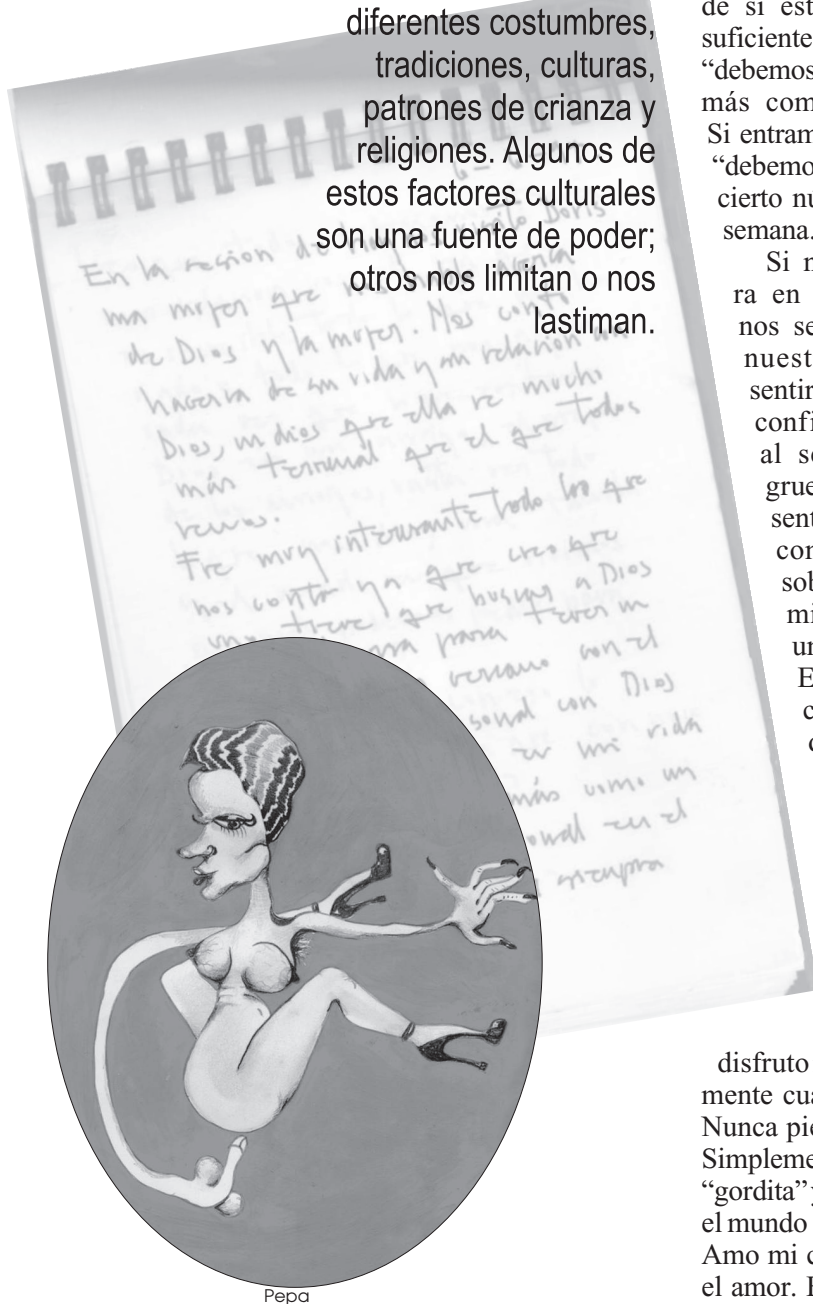 diferentes costumbres,
tradiciones, culturas,
patrones de crianza y
religiones. Algunos de
estos factores culturales
son una fuente de poder;
otros nos limitan o nos
lastiman.
En la region de hoy nos visito Doris
una mujer que nos acerca
de Dios y la mujer. Nos conto
hacerca de su vida y su relacion con
Dios, un dios que ella ve mucho
más terrenal que el que todos
vemos.
Fue muy interesante todo lo que
nos conto ya que creo que
uno tiene que buscar a Dios
para tener un
cercano con el
sonal con Dios
en mi vida
más como un
onal en el
Pepa
de si est
suficiente
“debemos
más com
Si entram
“debemo
cierto nú
semana.
Si n
ra en
nos se
nuest
sentir
confi
al so
grue
sent
con
sob
mi
un
E
c
disfruto
mente cua
Nunca pie
Simpleme
“gordita” y
el mundo
Amo mi c
el amor. E